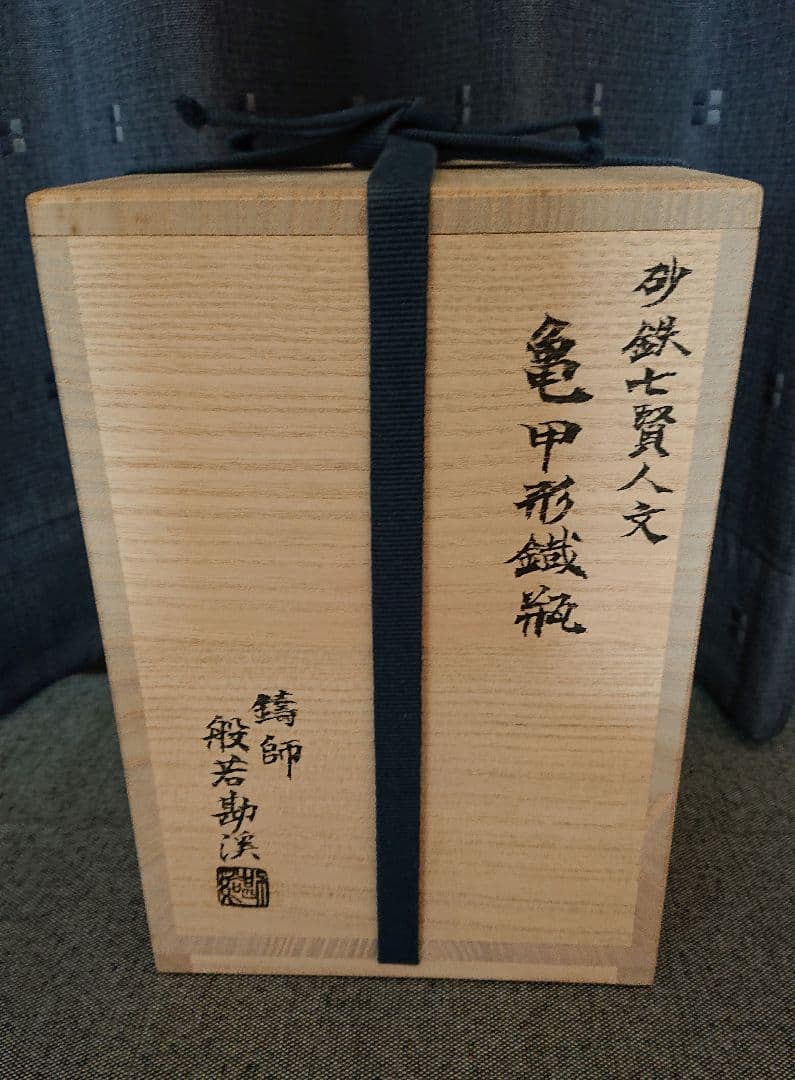 砂鉄七賢人文
亀甲形鐵瓶
鋳師
般若勘溪